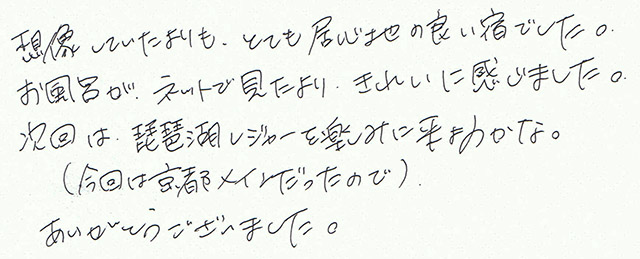 想像していたよりも、とても居心地の良い宿でした。
お風呂が、ネットで見たより、きれいに感じました。
次回は、琵琶湖レジャーを楽しみに来ようかな。
(今回は京都メインだったので)
ありがとうございました。